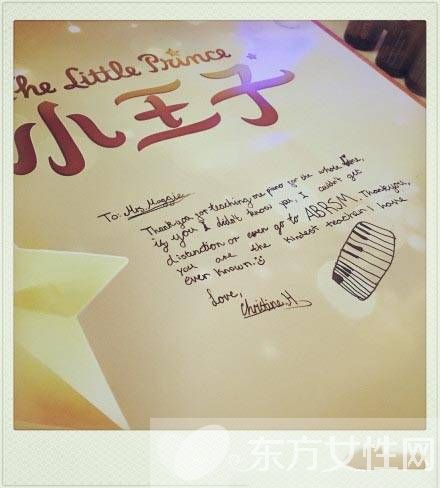 The Little Prince
小王子
To: Mrs. Maggie
Thank you for teaching me piano for the whole time,
if you I didn't know you, I couldn't get
distinction or even go to ABRSM. Thank you,
you are the kindest teacher I have
ever known.
Love,
Christine.H
东方女性网